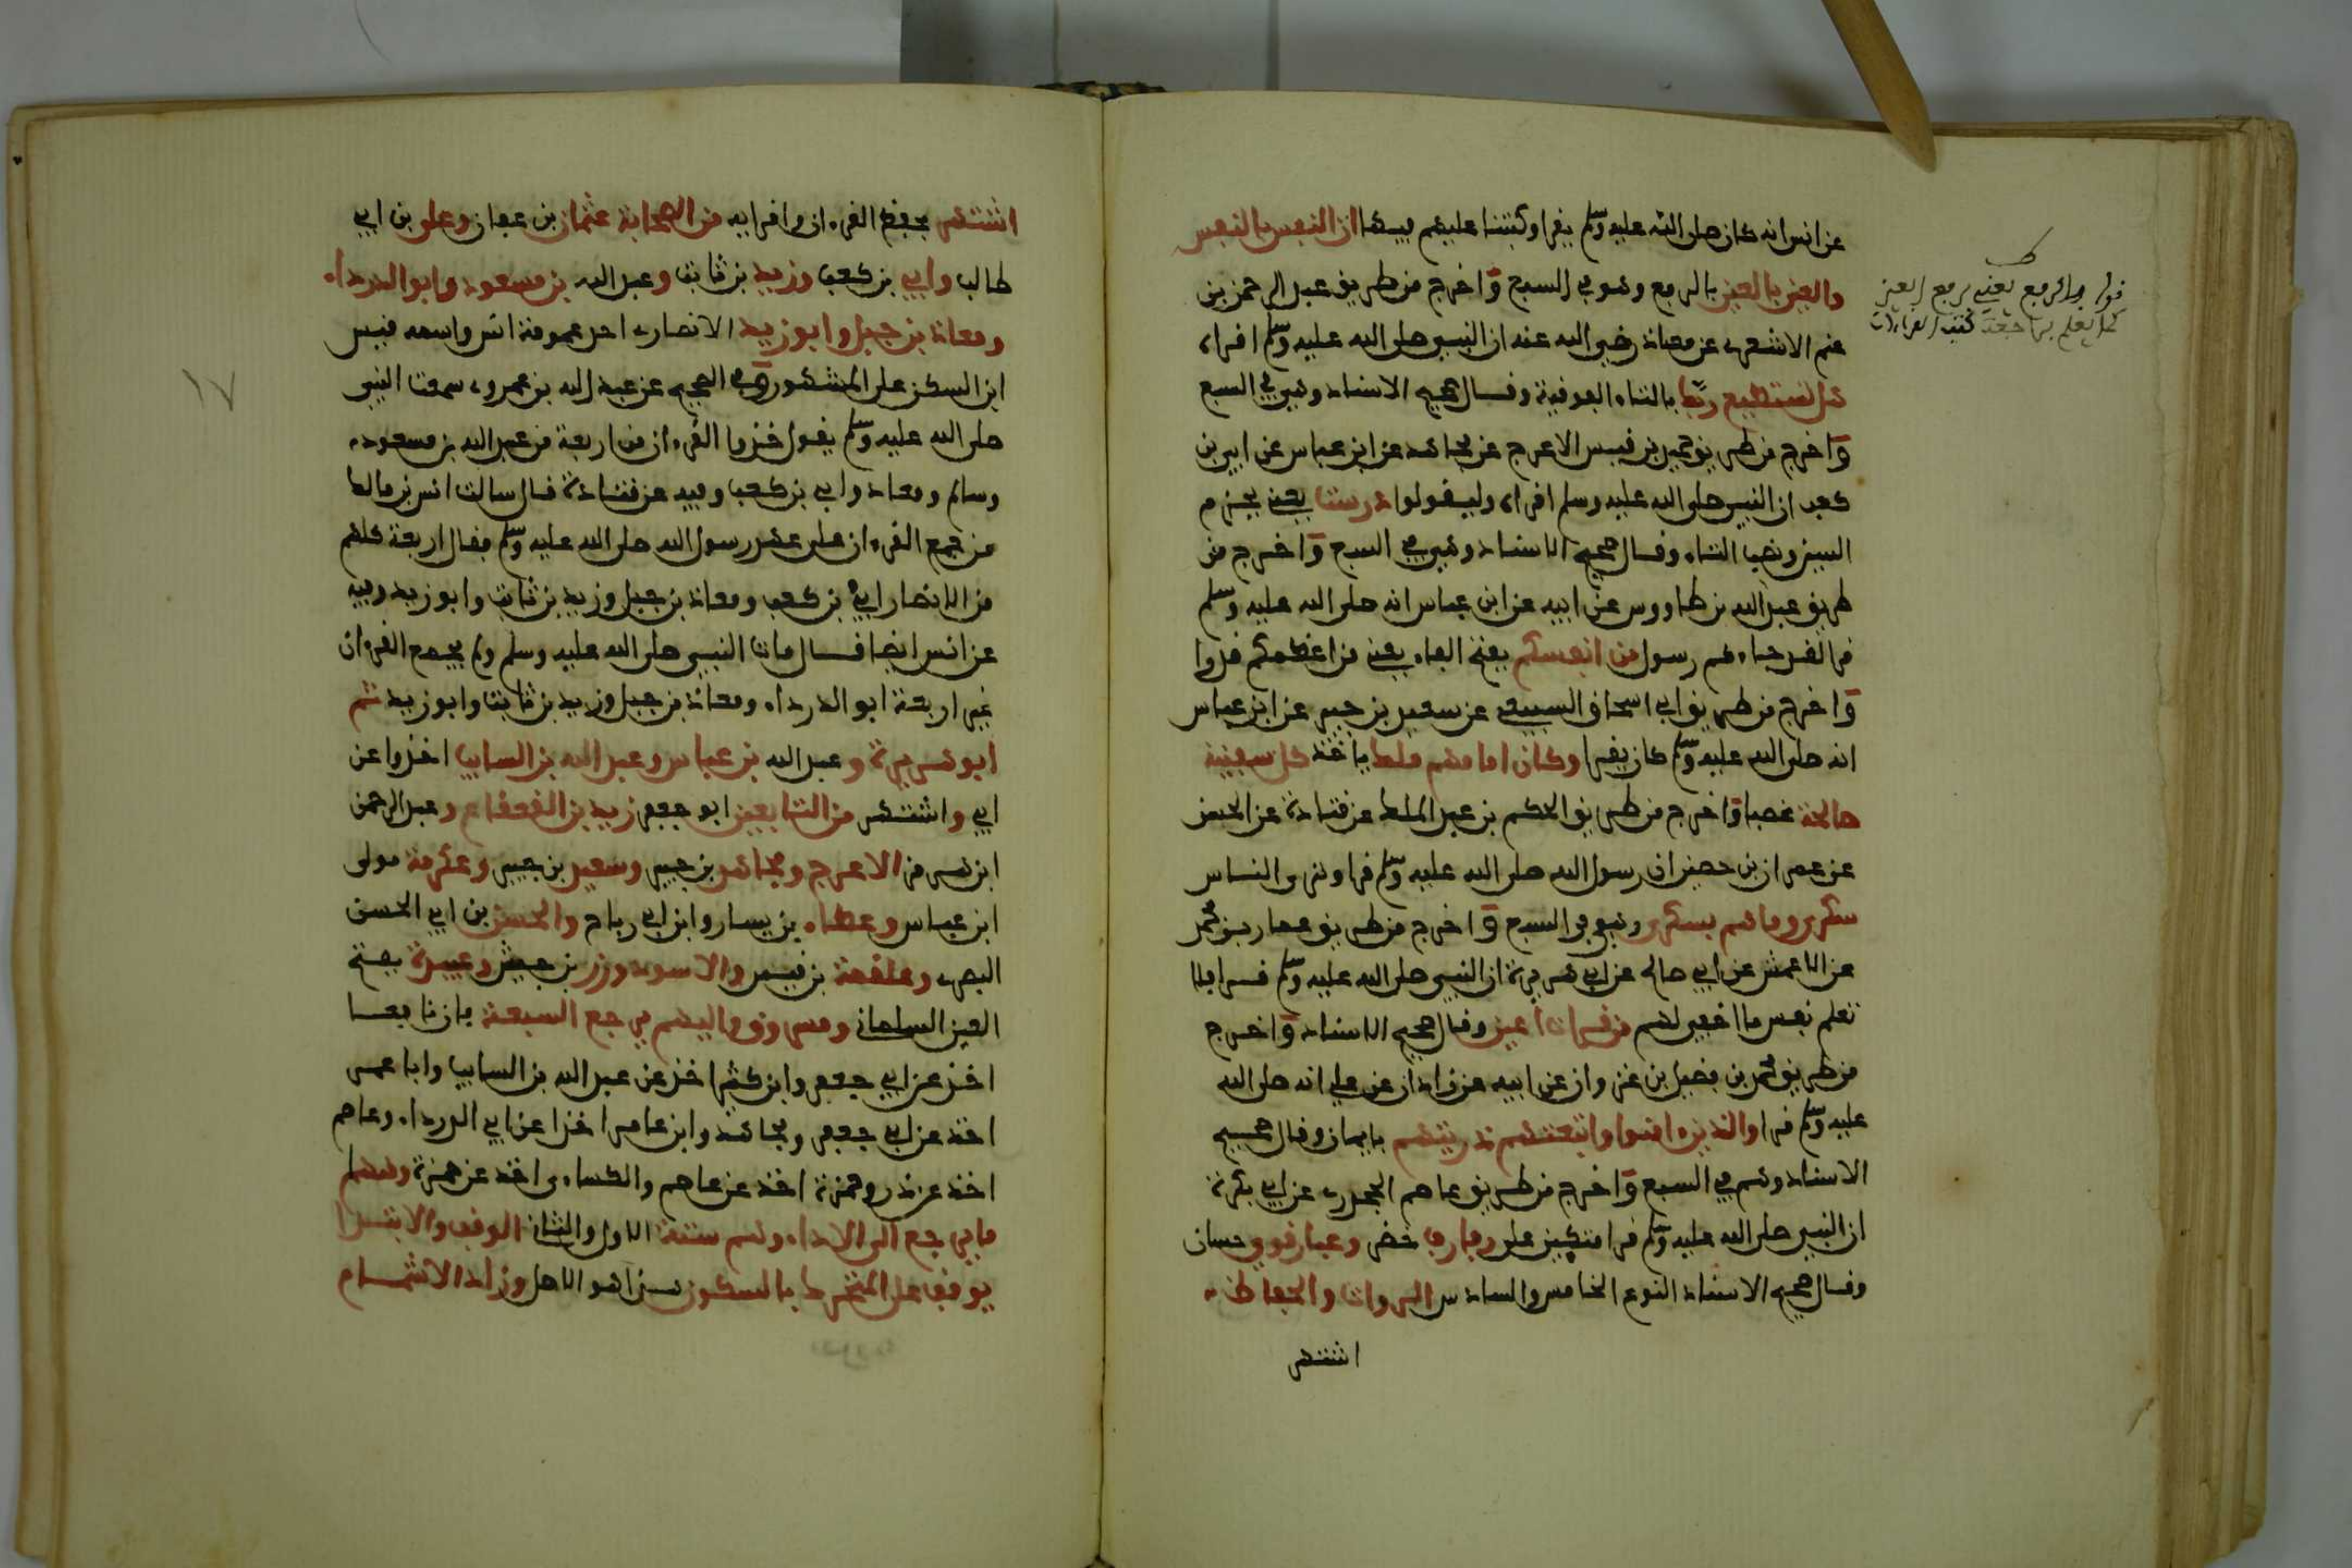 عن انس انه كان صلى الله عليه وسلم يقرا وكتبنا عليهم فيها ان النفس بالنفس
والعين بالعين بالرفع وهو في السبع واخرج من طريق عبد الرحمن بن
غنم الاشعري عن معاذ رضي الله عنه ان النبي صلى الله عليه وسلم اقراه
هل تستطيع ربك بالتاء الفوقية وقال صحيح الاسناد وهي في السبع
واخرج من طريق حميد بن قيس الاعرج عن مجاهد عن ابن عباس عن ابي بن
كعب ان النبي صلى الله عليه وسلم اقراه وليقولوا درست يعني بجزم
السين ونصب التاء وقال صحيح الاسناد وهي في السبع واخرج من
طريق عبد الله بن طاووس عن ابيه عن ابن عباس انه صلى الله عليه وسلم
قرا لقد جاءكم رسول من انفسكم بفتح الفاء يعني من اعظمكم قدرا
واخرج من طريق ابي اسحاق السبيعي عن سعيد بن جبير عن ابن عباس
انه صلى الله عليه وسلم كان يقرا وكان امامهم ملك ياخذ كل سفينة
صالحة غصبا واخرج من طريق الحكم بن عبد الملك عن قتادة عن الحسن
عن عمران بن حصين ان رسول الله صلى الله عليه وسلم قرا وترى الناس
سكرى وما هم بسكرى وهو في السبع واخرج من طريق عمار بن محمد
عن الاعمش عن ابي صالح عن ابي هريرة ان النبي صلى الله عليه وسلم قرا فلا
تعلم نفس ما اخفي لهم من قرات اعين وقال صحيح الاسناد واخرج
من طريق محمد بن فضيل بن غزوان عن ابيه عن زاذان عن علي انه صلى الله
عليه وسلم قرا والذين ءامنوا واتبعتهم ذريتهم بايمان وقال صحيح
الاسناد وهي في السبع واخرج من طريق عاصم الجحدري عن ابي بكرة
ان النبي صلى الله عليه وسلم قرا متكئين على رفارف خضر وعباقري حسان
وقال صحيح الاسناد النوع الخامس والسادس الرواة والحفاظ
اشتهر
قوله بالرفع يعني برفع العين
كما يعلم بمراجعة كتب القراءات
اشتهر بحفظ القرءان واقرايه من الصحابة عثمان بن عفان وعلي بن ابي
طالب وابي بن كعب وزيد بن ثابت وعبد الله بن مسعود وابو الدرداء
ومعاذ بن جبل وابو زيد الانصاري احد عمومة انس واسمه قيس
ابن السكن على المشهور وفي الصحيح عن عبد الله بن عمرو سمعت النبي
صلى الله عليه وسلم يقول خذوا القرءان من اربعة من عبد الله بن مسعود
وسالم ومعاذ وابي بن كعب وفيه عن قتادة قال سالت انس بن مالك
من جمع القرءان على عهد رسول الله صلى الله عليه وسلم فقال اربعة كلهم
من الانصار ابي بن كعب ومعاذ بن جبل وزيد بن ثابت وابو زيد وفيه
عن انس ايضا قال مات النبي صلى الله عليه وسلم ولم يجمع القرءان
غير اربعة ابو الدرداء ومعاذ بن جبل وزيد بن ثابت وابو زيد ثم
ابو هريرة وعبد الله بن عباس وعبد الله بن السايب اخذوا عن
ابي واشتهر من التابعين ابو جعفر زيد بن القعقاع وعبد الرحمن
ابن هرمز الاعرج ومجاهد بن جبير وسعيد بن جبير وعكرمة مولى
ابن عباس وعطاء بن يسار وابن ابي رباح والحسن بن ابي الحسن
البصري وعلقمة بن قيس والاسود وزر بن حبيش وعبيدة بفتح
العين السلماني ومسروق واليهم يرجع السبعة فان نافعا
اخذ عن ابي جعفر وابن كثير اخذ عن عبد الله بن السايب وابا عمر
اخذ عن ابي جعفر ومجاهد وابن عامر اخذا عن ابي الدرداء وعاصم
اخذ عن زر وحمزة اخذ عن عاصم والكساءي اخذ عن حمزة ومنها
ما يرجع الى الاداء وهم ستة الاول والثاني الوقف والابتدا
يوقف على المتحرك بالسكون هذا هو الاصل وزاد الاشمام
١٧